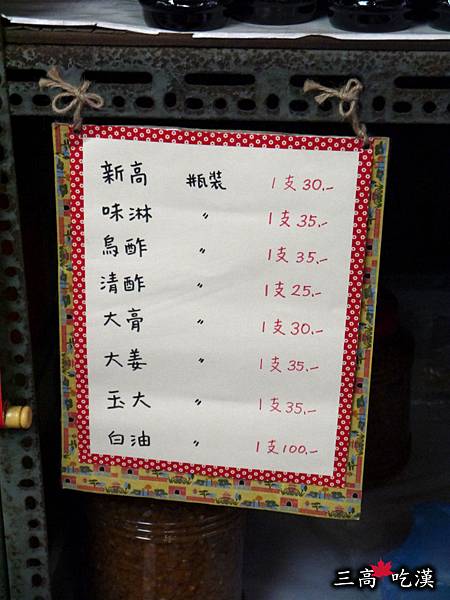 新高 瓶裝 1支 30.-
味淋 〃 1支 35.-
烏酢 〃 1支 35.-
清酢 〃 1支 25.-
大膏 〃 1支 30.-
大姜 〃 1支 35.-
玉大 〃 1支 35.-
白油 〃 1支 100.-
三高 吃漢